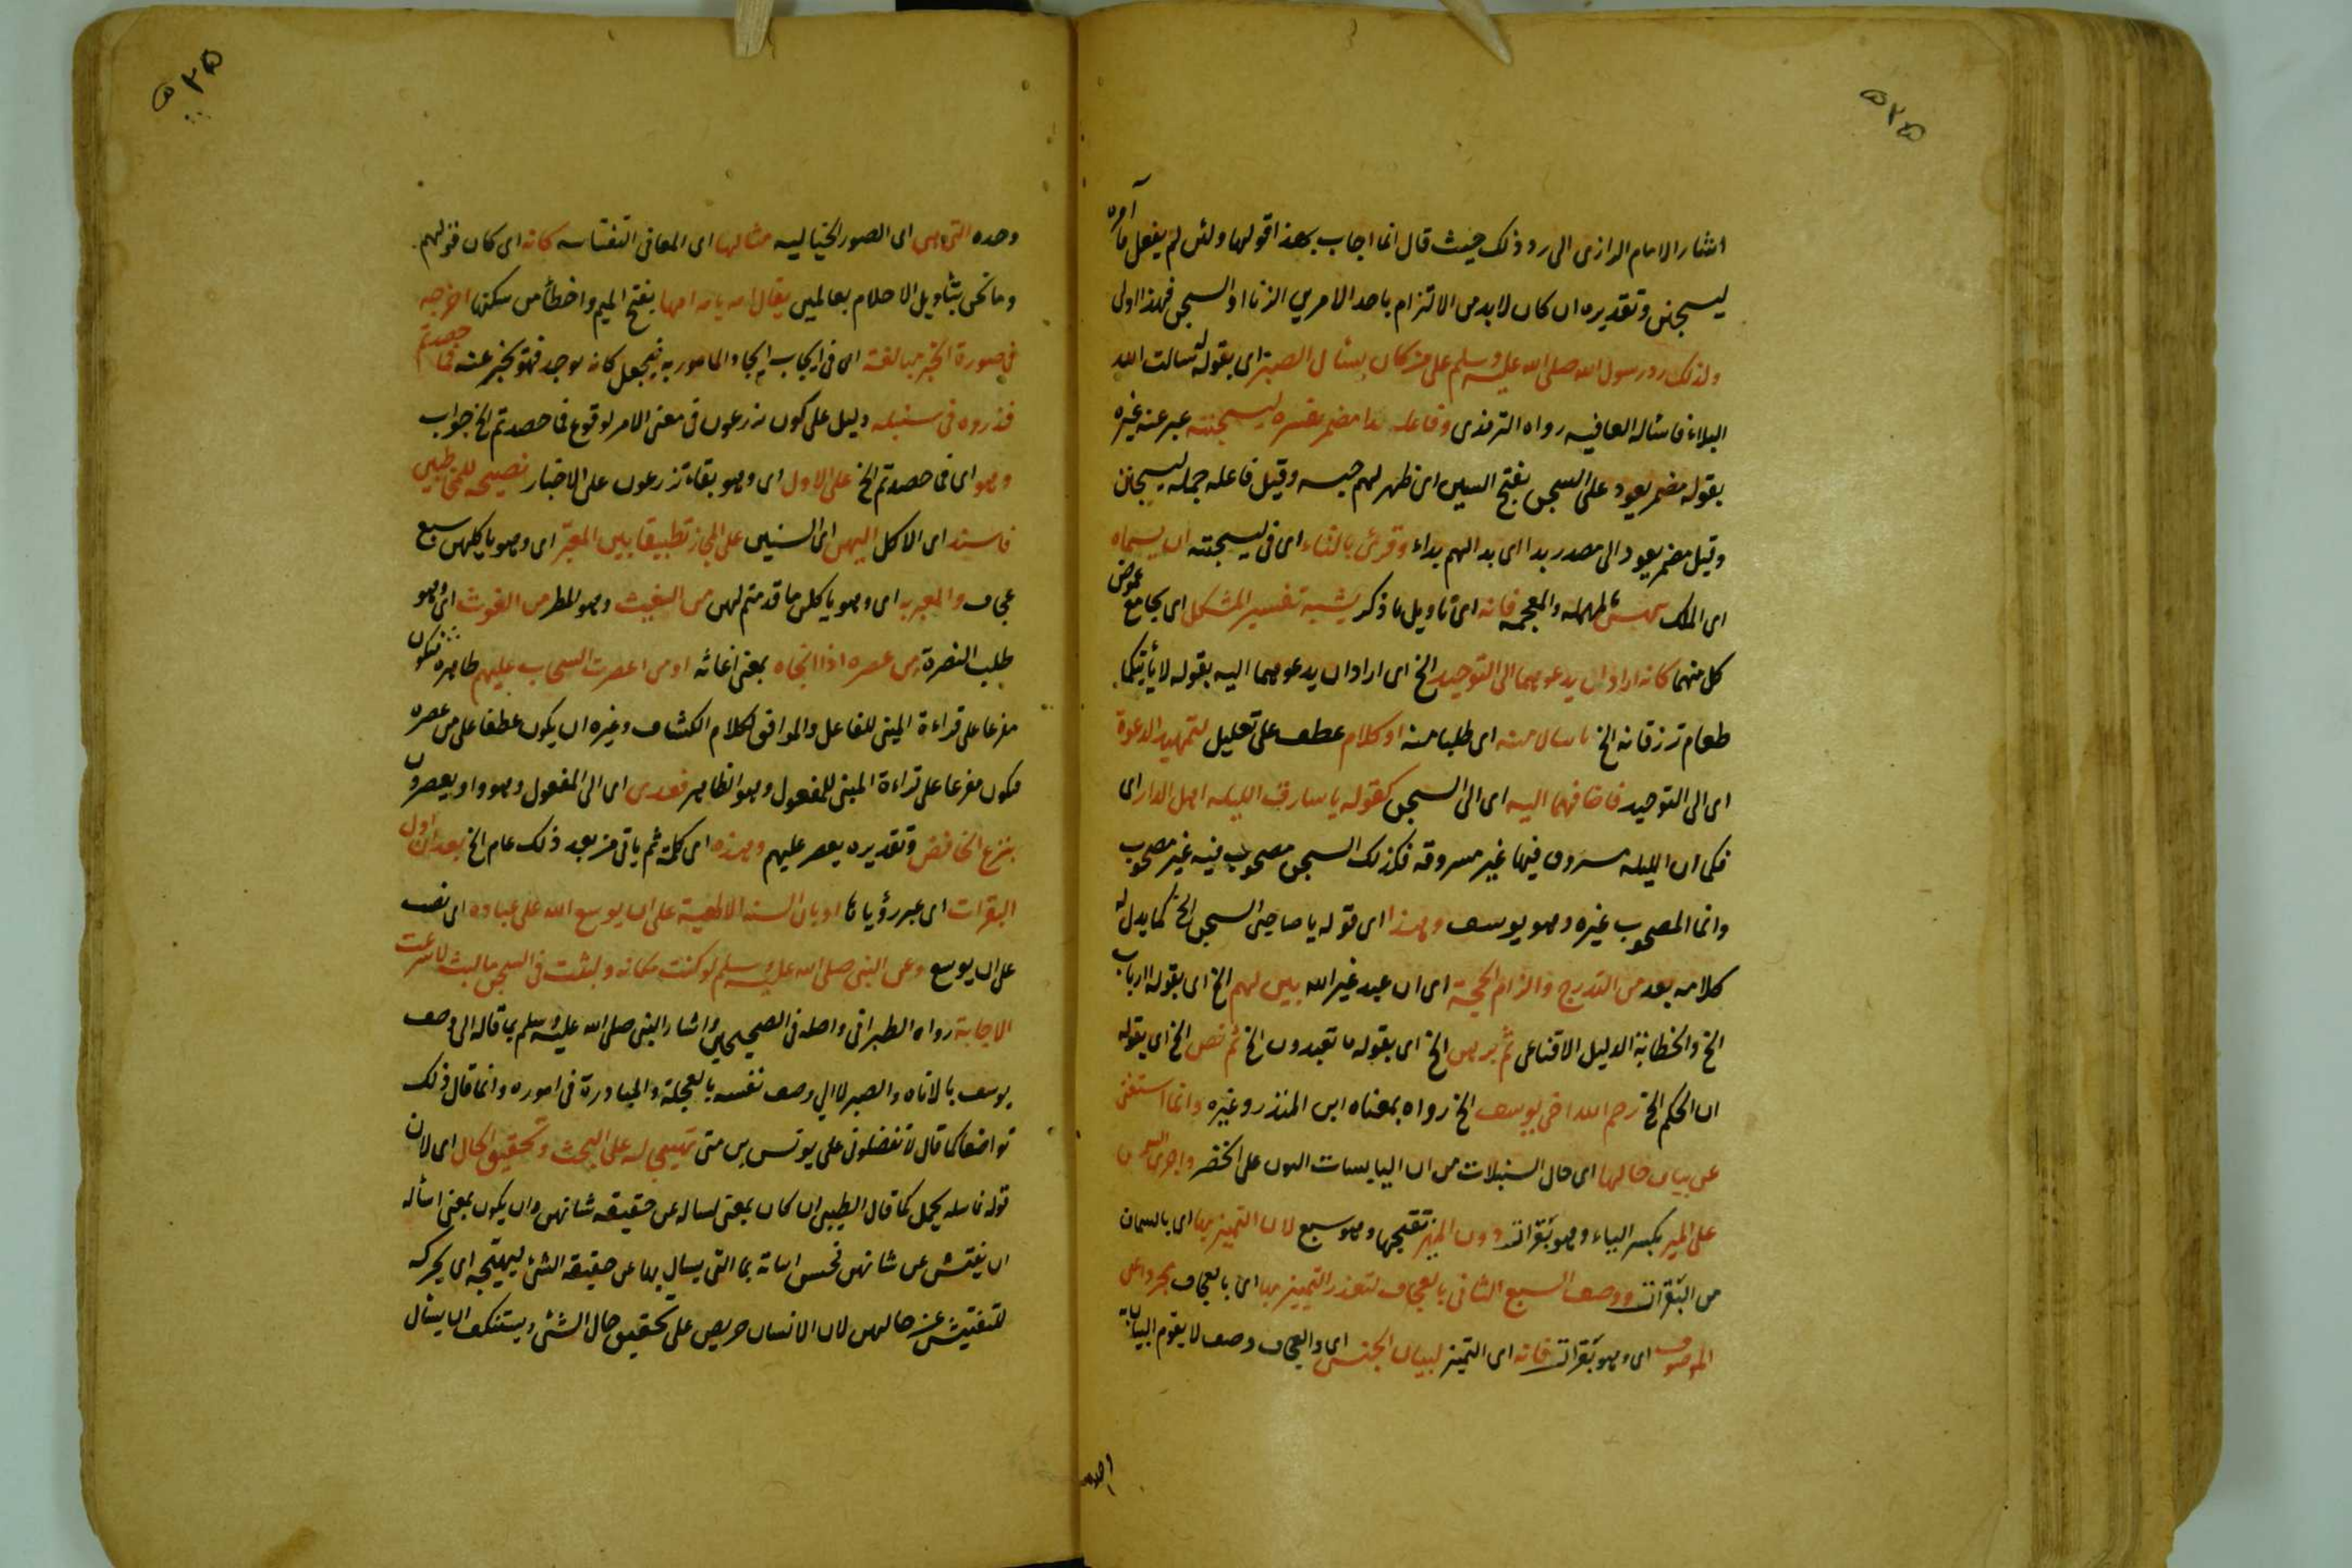 اشار الامام الرازى الى رد ذلك حيث قال انما اجاب بهذا قولها ولئن لم يفعل ما آمره
ليسجنن وتقديره ان كان لابد من الالتزام باحد الامرين الزنا او السجن فهذا اولى
ولذلك رد رسول الله صلى الله عليه وسلم على من كان يسأل الصبر اى بقوله سالت الله
البلاء فاسأله العافيه رواه الترمذى وفاعل بدا مضمر يفسره ليسجننه عبر عنه غيره
بقوله مضمر يعود على السجن بفتح السين اى ظهر لهم حبسه وقيل فاعله جمله ليسجنن
وقيل مضمر يعود الى مصدر بدا اى بدا لهم بداء وقرئ بالتاء اى فى ليسجننه
اى الملك والمعجمه فانه اى تاويل ما ذكر يشبه تفسير المشكل اى بجامع غموض
كل منهما كانه اراد ان يدعوهما الى التوحيد الخ اى اراد ان يدعوهما اليه بقوله لا يأتيكما
طعام ترزقانه الخ اى طلبا منه او كلام عطف على تعليل لتمهيد الدعوة
اى الى التوحيد فاضافهما اليه اى الى السجن كقوله يا سارق الليله اهل الدار اى
فكما ان الليله مسروق فيها غير مسروقه فكذلك السجن مصحوب فيه غير مصحوب
وانما المصحوب غيره وهو يوسف وهذا اى قوله يا صاحبى السجن الخ كما يدل له
كلامه بعد من التدرج والزام الحجة اى ان عبد غير الله بين لهم الخ اى بقوله اارباب
الخ والخطابة الدليل الاقناعى ثم برهن الخ اى بقوله ما تعبدون الخ ثم نص الخ اى بقوله
ان الحكم الخ رحم الله اخى يوسف الخ رواه بمعناه ابن المنذر وغيره وانما استغنى
عن بيان حالها اى حال السنبلات من ان اليابسات على الخضر واجرى
على المميز بكسر الياء وهو بقرات دون المميز بفتحها وهو سبع لان التمييز بها اى بالسمان
من البقرات ووصف السبع الثانى بالعجاف لتعذر التمييز بها اى بالعجاف مجردا عن
الموصوف اى وهو بقرات فانه اى التمييز لبيان الجنس اى والعجاف وصف لا يقوم البيان به
وحده اى الصور الخياليه مثالها اى المعانى النفسانيه كانه اى كان قولهم
وما نحن بتاويل الاحلام بعالمين يقال امه يامه امها بفتح الميم واخطأ من سكنها اخرجه
فى صورة الخبر مبالغة اى فى ايجاب ايجاد المامور به فيجعل كانه يوجد فهو يخبر عنه فما حصدتم
فذروه فى سنبله دليل على كون تزرعون فى معنى الامر لوقوع فما حصدتم الخ جواب
وهو اى فما حصدتم الخ على الاول اى وهو بقاء تزرعون على الاخبار نصيحه للمخاطبين
فاسند اى الاكل اليهن اى السنين على المجاز تطبيقا بين المعبر اى وهو ياكلهن سبع
عجاف والمعبر به اى وهو ياكلن ما قدمتم لهن من الغيث وهو المطر من الغوث اى وهو
طلب النصرة من عصره اذا انجاه بمعنى اغاثه او من اعصرت السحاب عليهم ظاهره فيكون
مفرعا على قراءة المبنى للفاعل والموافق لكلام الكشاف وغيره ان يكون عطفا على من عصره
فيكون مفرعا على قراءة المبنى للمفعول وهو الظاهر فعدى اى الى المفعول وهو واو يعصرون
بنزع الخافض وتقديره يعصر عليهم وهذه اى كلمة ثم ياتى من بعد ذلك عام الخ بعد ان اول
البقرات اى عبر رؤياها او بان السنه الالهية على ان يوسع الله على عباده اى
على ان يوسع وعن النبى صلى الله عليه وسلم لو كنت مكانه ولبثت فى السجن ما لبث لاسرعت
الاجابة رواه الطبرانى واصله فى الصحيحين واشار النبى صلى الله عليه وسلم بما قاله الى وصف
يوسف بالاناه والصبر لا الى وصف نفسه بالعجلة والمبادرة فى اموره وانما قال ذلك
تواضعا كما قال لا تفضلونى على يونس بن متى تهييجا له على البحث وتحقيق الحال اى لان
قوله فاسله يحمل كما قال الطيبى ان كان بمعنى لساله عن حقيقه شانهن وان يكون بمعنى اسأله
ان يفتش عن شانهن فحسن اتى بما التى يسال بها عن حقيقه الشئ ليهيجه اى يحركه
للتفتيش عن حالهن لان الانسان حريص على تحقيق حال الشئ ويستنكف ان يسأل